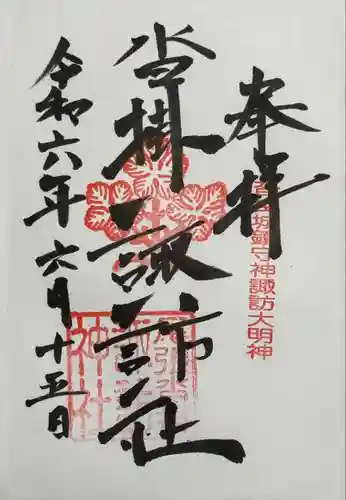 奉拝
坂鎮守神諏訪大明神
沓掛諏訪社
神社
令和六年六月十五日